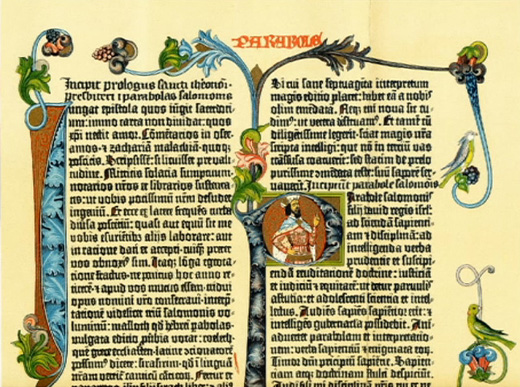 PARABOLE
Incipit prologus sancti iheronimi
presbiteri i parabolas salomonis
Iungat epistola quos iūgit sacerdo-
cium: immo carta non diuidat: quos
xpi nectit amor. Cōmētarios in osee.
amos. et zachariā malachiā. quoq;
poscitis. Scripsissē: si licuisset pre vali-
tudine. Mittitis solacia sumptuum.
notarios nros et librarios sustenta-
tis: ut vobis potissimū nrm desudet
ingeniū. Et ecce ex latere frequēs turba
diūsa poscētiū: quasi aut equū sit me
vobis esuriētibus aliis laborare: aut
in ratione dati et accepti. cuiq; preter
vos obnoxi9 sim. Itaq; lōga egrota-
tione fractus. ne penitus hoc anno re-
ticerē. et apud vos mutus essem. tridui
opus nomini vro consecraui. interp-
tationē videlicet triū salomonis vo-
luminū: masloth qd hebrei pabolas.
vulgata editio pubia vocat: coeleth.
quē grece ecclesiasten. latine cōcionatorē
possum9 dicere: sirasirim. qd i linguā
nram vertit canticū canticorū. Fertur et
Si cui sane septuaginta interpretum
magis editio placet: habet eā a nobis
olim emēdatā. Neq; eni noua sic cu-
dim9: ut vetera destruam9. Et tamē cū
diligētissime legerit. sciat magis nra
scripta intelligi: que nō in terciū vas
trāsfusa coacuerīt: sed statim de prelo
purissime ōmēdata teste: suū saporē ser-
uauerīt. Incipiunt parabole salomonis
Parabole salomonis
filii dauid regis isrl:
ad sciendā sapienti-
am et disciplinā: ad
intelligenda verba
prudentie et suscipi-
endā eruditationē doctrine: iusticiā
et iudiciū et equitatē: ut detur paruulis
astutia: et adolescenti scientia et intel-
lectus. Audiēs sapiēs sapientior erit: et
intelligēs gubernacula possidebit. Ani-
aduertet parabolam et interpretatio-
nem: verba sapientiū et enigmata eorū.
Timor dni principiū sapientie. Sapien-
tiam atq; doctrinam stulti despiciūt.
Audi fili mi disciplinā pris tui et ne